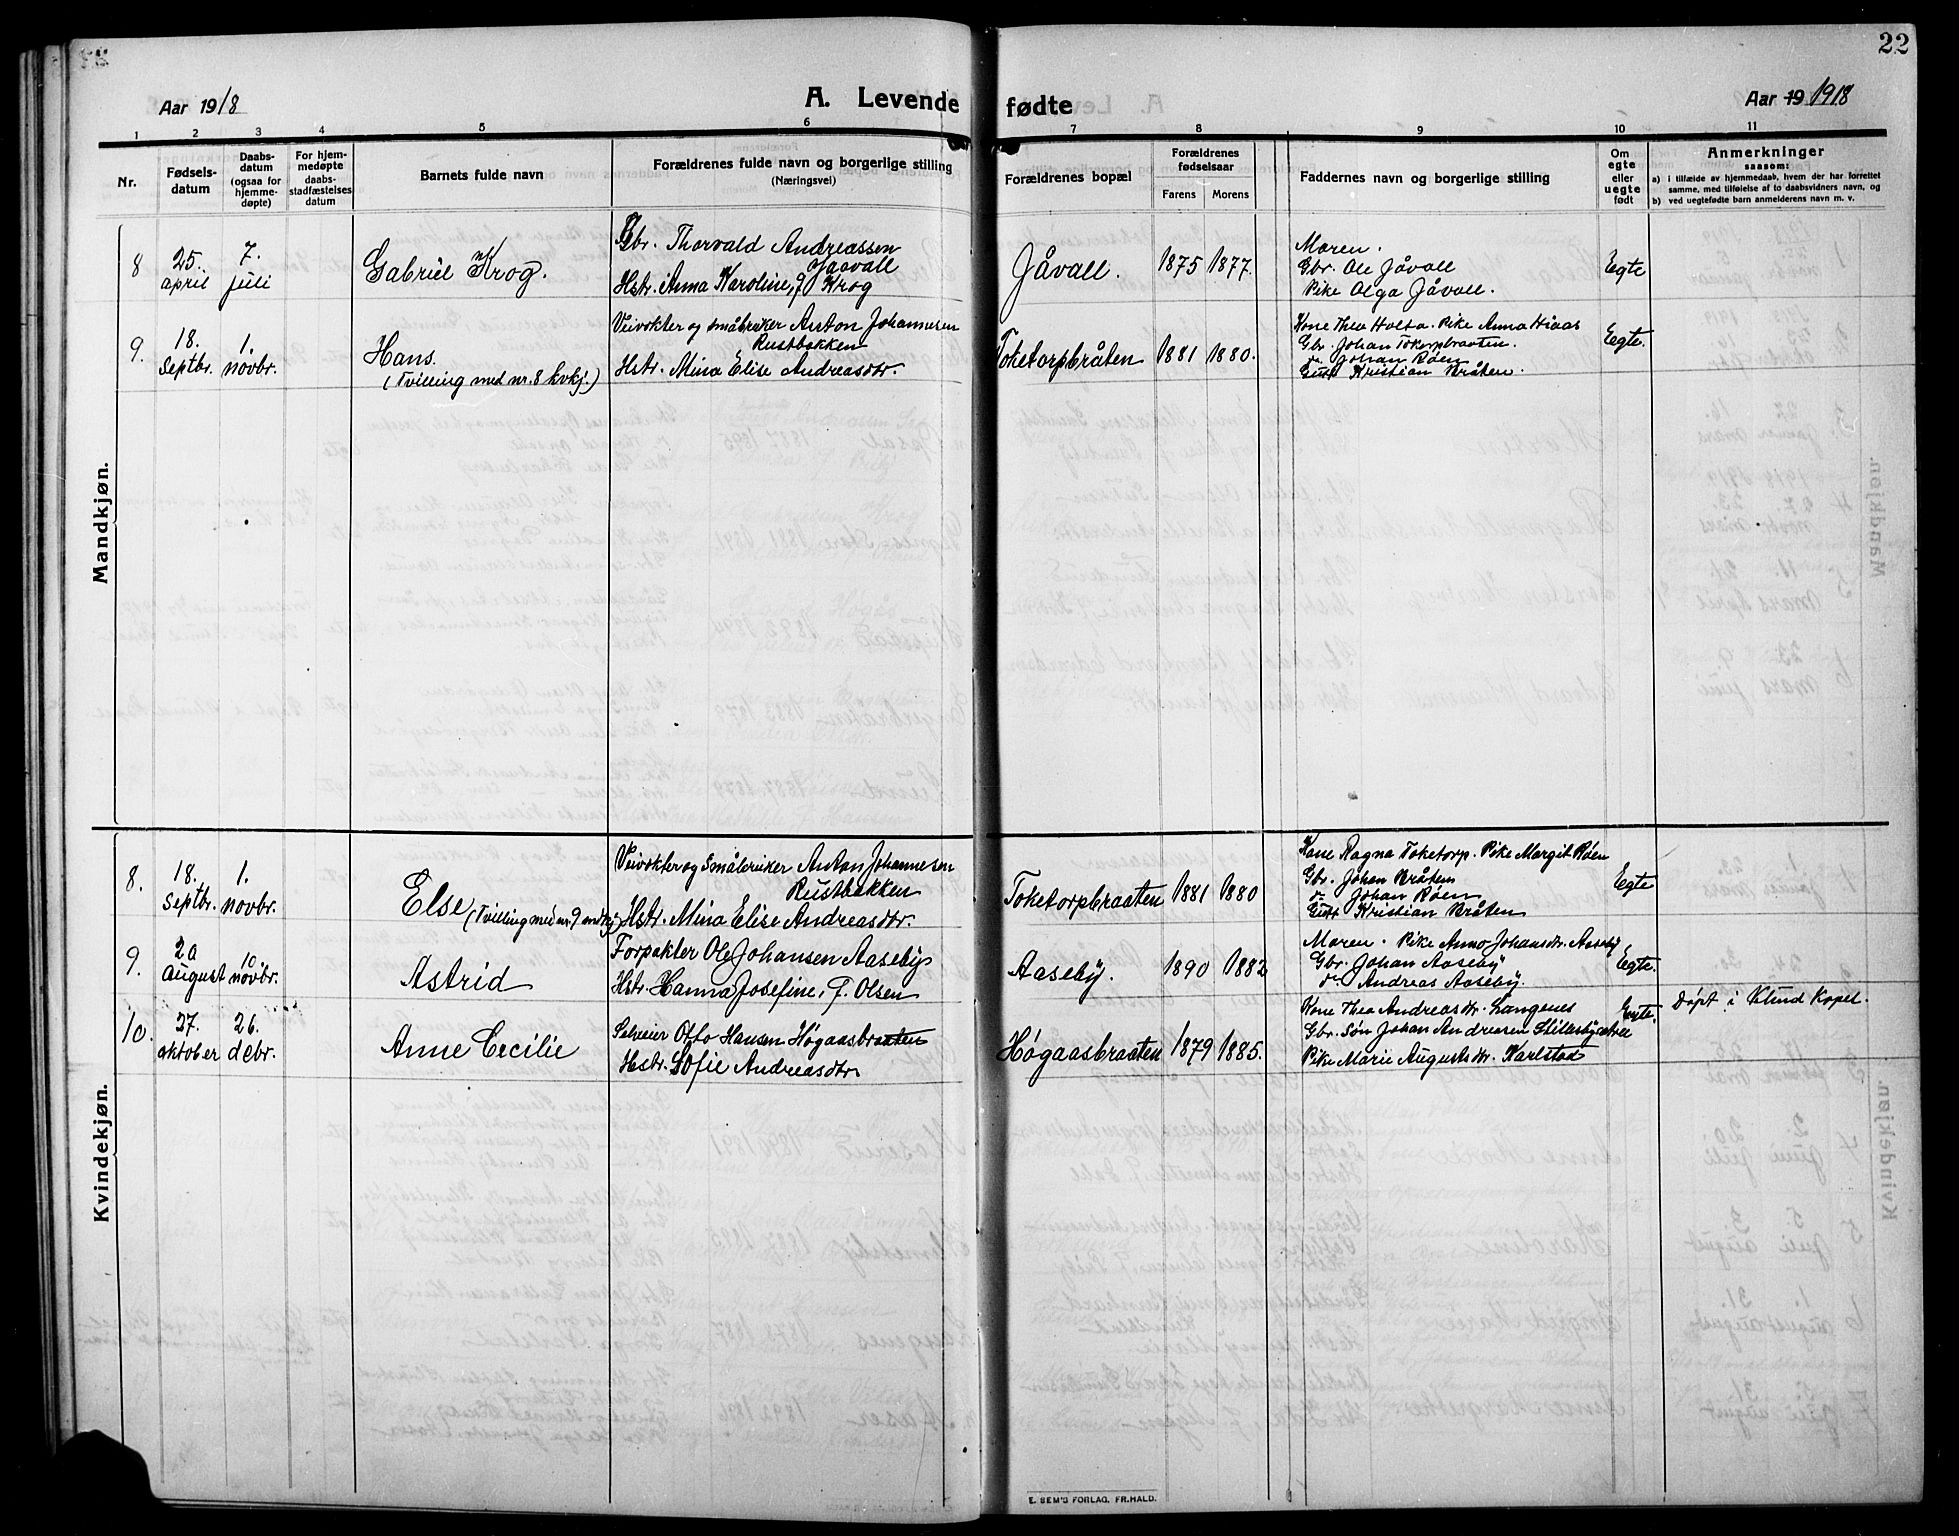 22
Aar 1918
A. Levende fødte
Aar 19 1918
1 2 3 4 5 6 7 8 9 10 11
Nr.
Fødsels-
datum
Daabs-
datum
(ogsaa for
hjemme-
døpte)
For hjem-
medøpte
daabs-
stadfæstelses
datum
Barnets fulde navn
Forældrenes fulde navn og borgerlige stilling
(Næringsvei)
Forældrenes bopæl
Forældrenes
fødselsaar
Farens Morens
Faddernes navn og borgerlige stilling
Om
egte
eller
uegte
født
Anmerkninger
saasom:
a) i tilfælde av hjemmedaab, hvem der har forrettet
samme, med tilføielse af to daabsvidners navn, og
b) ved uegtefødte barn anmelderens navn m. v.
Mandkjøn.
8
25.
april
7.
juli
Gabriel Krog.
Gbr. Thorvald Andreassen
Jaavall
Hstr. Anna Karoline, f. Krog
Jåvall.
1875 1877.
Moren.
Gbr. Ole Jåvall
Pike Olga Jåvall.
Egte
9.
18.
Septbr.
1.
novbr.
Hans.
(Tvilling med nr. 8 kvkj.)
Veivokter og småbruker Anton Johannesen
Rustbakken
Hstr. Mina Elise Andreasdtr.
Toketorpbråten
1881 1880.
Kone Thea Holta. Pike Anna
Gbr. Johan Toketorpbraaten.
do Johan Røen
Gutt Kristian Bråten.
Egte.
Kvindekjøn.
8.
18.
Septbr.
1.
novbr.
Else
(Tvilling med nr. 9 mndkj)
Veivokter og Småbruker Anton Johannesen
Rustbakken
Hstr. Mina Elise Andreasdtr.
Toketorpbraaten
1881 1880
Kone Ragna Toketorp. Pike Margit Røen
Gbr. Johan Bråten
do Johan Røen
Gutt Kristian Bråten
Egte
9.
20
august
10.
novbr.
Astrid
Forpakter Ole Johansen Aaseby
Hstr. Hanna Josefine, f. Olsen
Aaseby.
1890 1882
Moren. Pike Anna Johansdtr. Aaseby
Gbr. Johan Aaseby
do Andreas Aaseby.
Egte.
10.
27.
oktober
26.
debr.
Anne Cecilie
Selveier Otto Hansen Høgaasbraaten
Hstr. Sofie Andreasdtr
Høgaasbraaten
1879 1885.
Kone Thea Andreasdtr. Langenes
Gbr. Søn Johan Andreasen Stillesbysætre
Pike Marie Augustsdtr. Karlstad
Egte.
Døpt i Klund Kapel.
E. SEM'S FORLAG, FR.HALD.